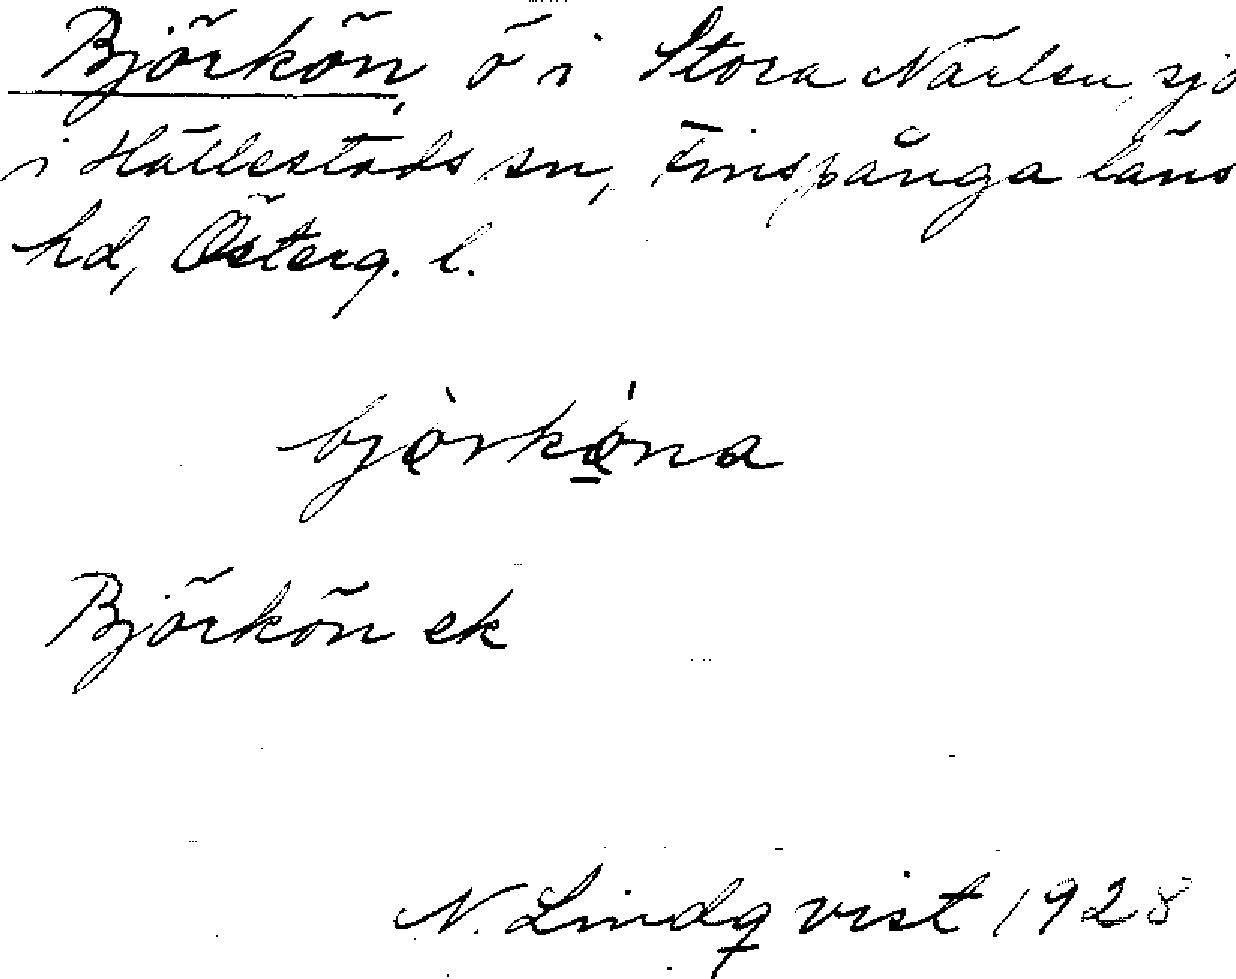 Björkön, ö i Stora Närlen, sjö
i Hällestads sn, Finspånga läns
hd, Österg. l.
björköna
Björkön ek
N. Lindqvist 1928